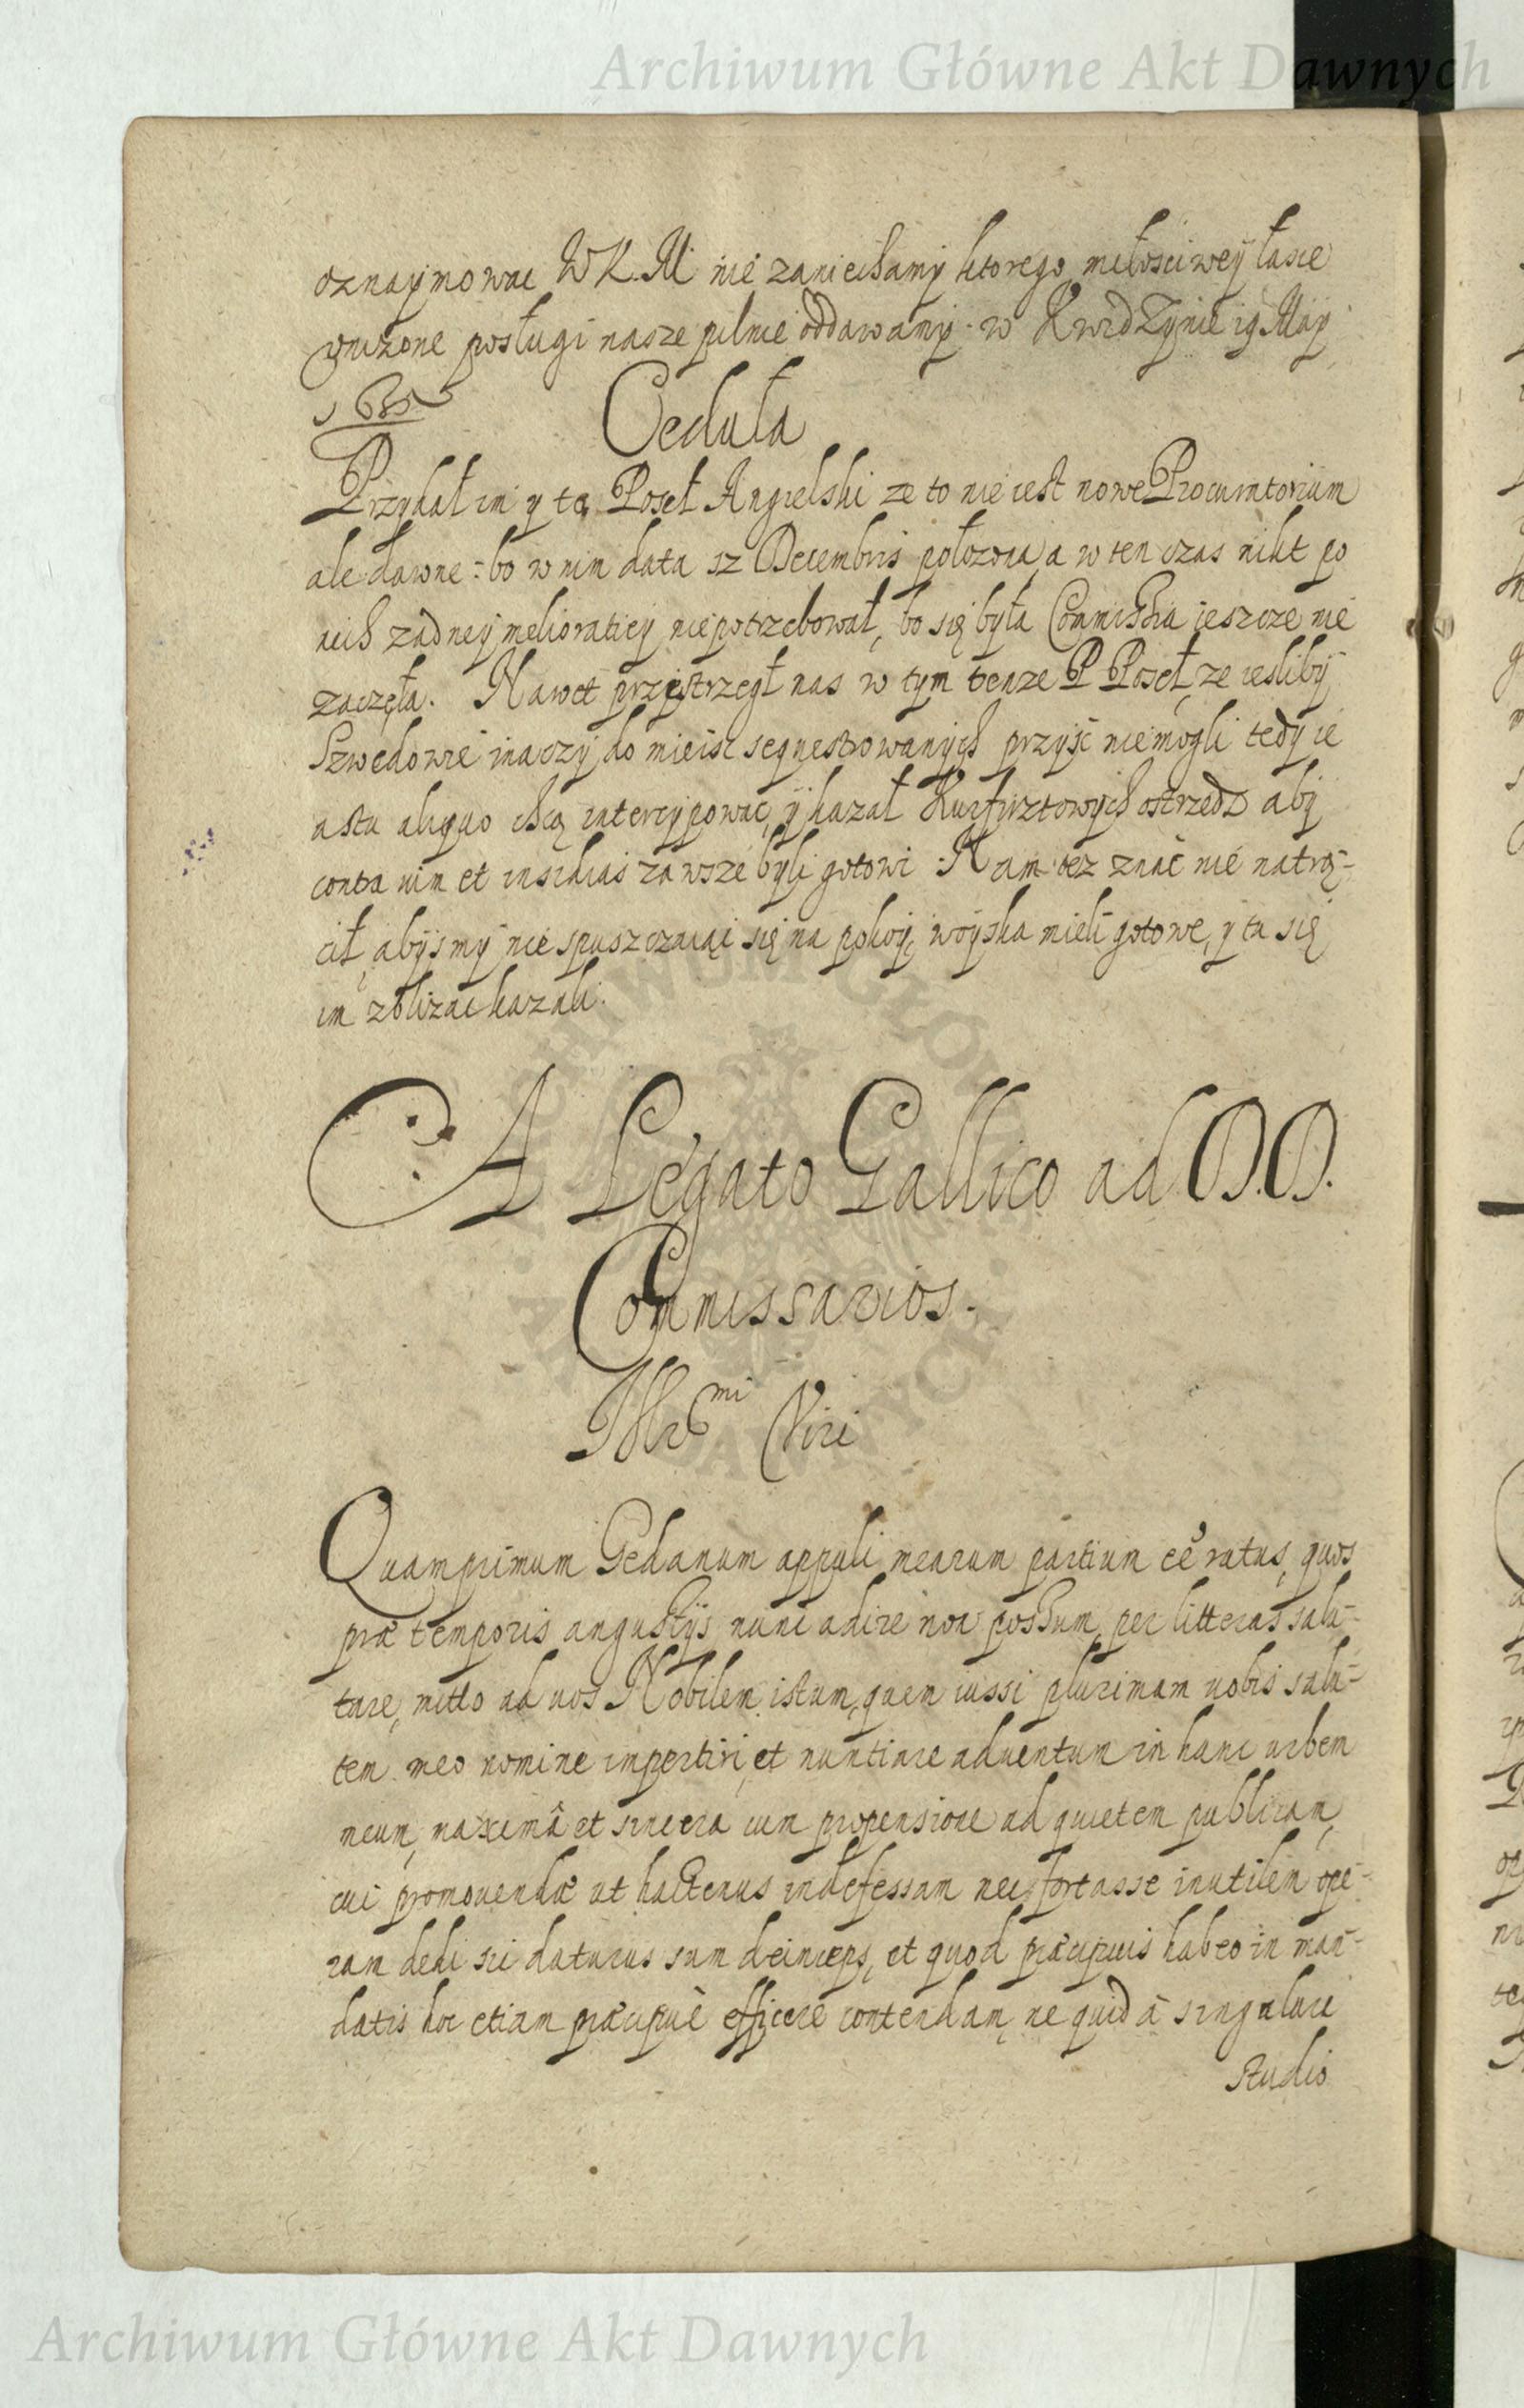 Archiwum Główne Akt Dawnych
oznaymowac WKM nie zaniechamy ktorego miłosciwey łasce
vnizone posługi nasze pilnie oddawamy. w Kwidzynie 19 May
1635
Ceduła
Przydał im y to Poseł Angielski ze to nie iest nowe Procuratorium
ale dawne: bo w nim data 12 Decembris położona, a w ten czas nikt po
nich zadney melioratiey niepotrzebował, bo się była Commissia ieszcze nie
zaczęła. Nawet przestrzegł nas w tym tenze P Poseł, ze iesliby
Szwedowie inaczy do mieisc sequestrowanych przyść niemogli tedy ie
astu aliquo chcą intercypowac, y kazał Kurfirztowych ostrzedz aby
contra vim et insidias zawsze byli gotowi. Nam tez znać nie natrą-
cił, abysmy nie spuszczaiąc się na pokoy, woyska mieli gotowe, y tu się
im zblizac kazali.
A Legato Gallico ad D.D.
Commissarios.
Illr͂mi Viri
Quamprimum Gedanum appuli mearum partium eē ratus, quos
præ temporis angustijs nunc adire non possum, per litteras salu-
tare, mitto ad uos Nobilem istum, quem iussi plurimam uobis salu-
tem meo nomine impertiri, et nuntiare aduentum in hanc urbem
meum, maximâ et sincera cum propensione ad quietem publicam,
cui promouendæ ut hactenus indefessam nec fortasse inutilem ope-
ram dedi sic daturus sum deinceps, et quod præcipuis habeo in man-
datis hoc etiam præcipuè efficere contendam, ne quid à singulari
studio
Archiwum Główne Akt Dawnych